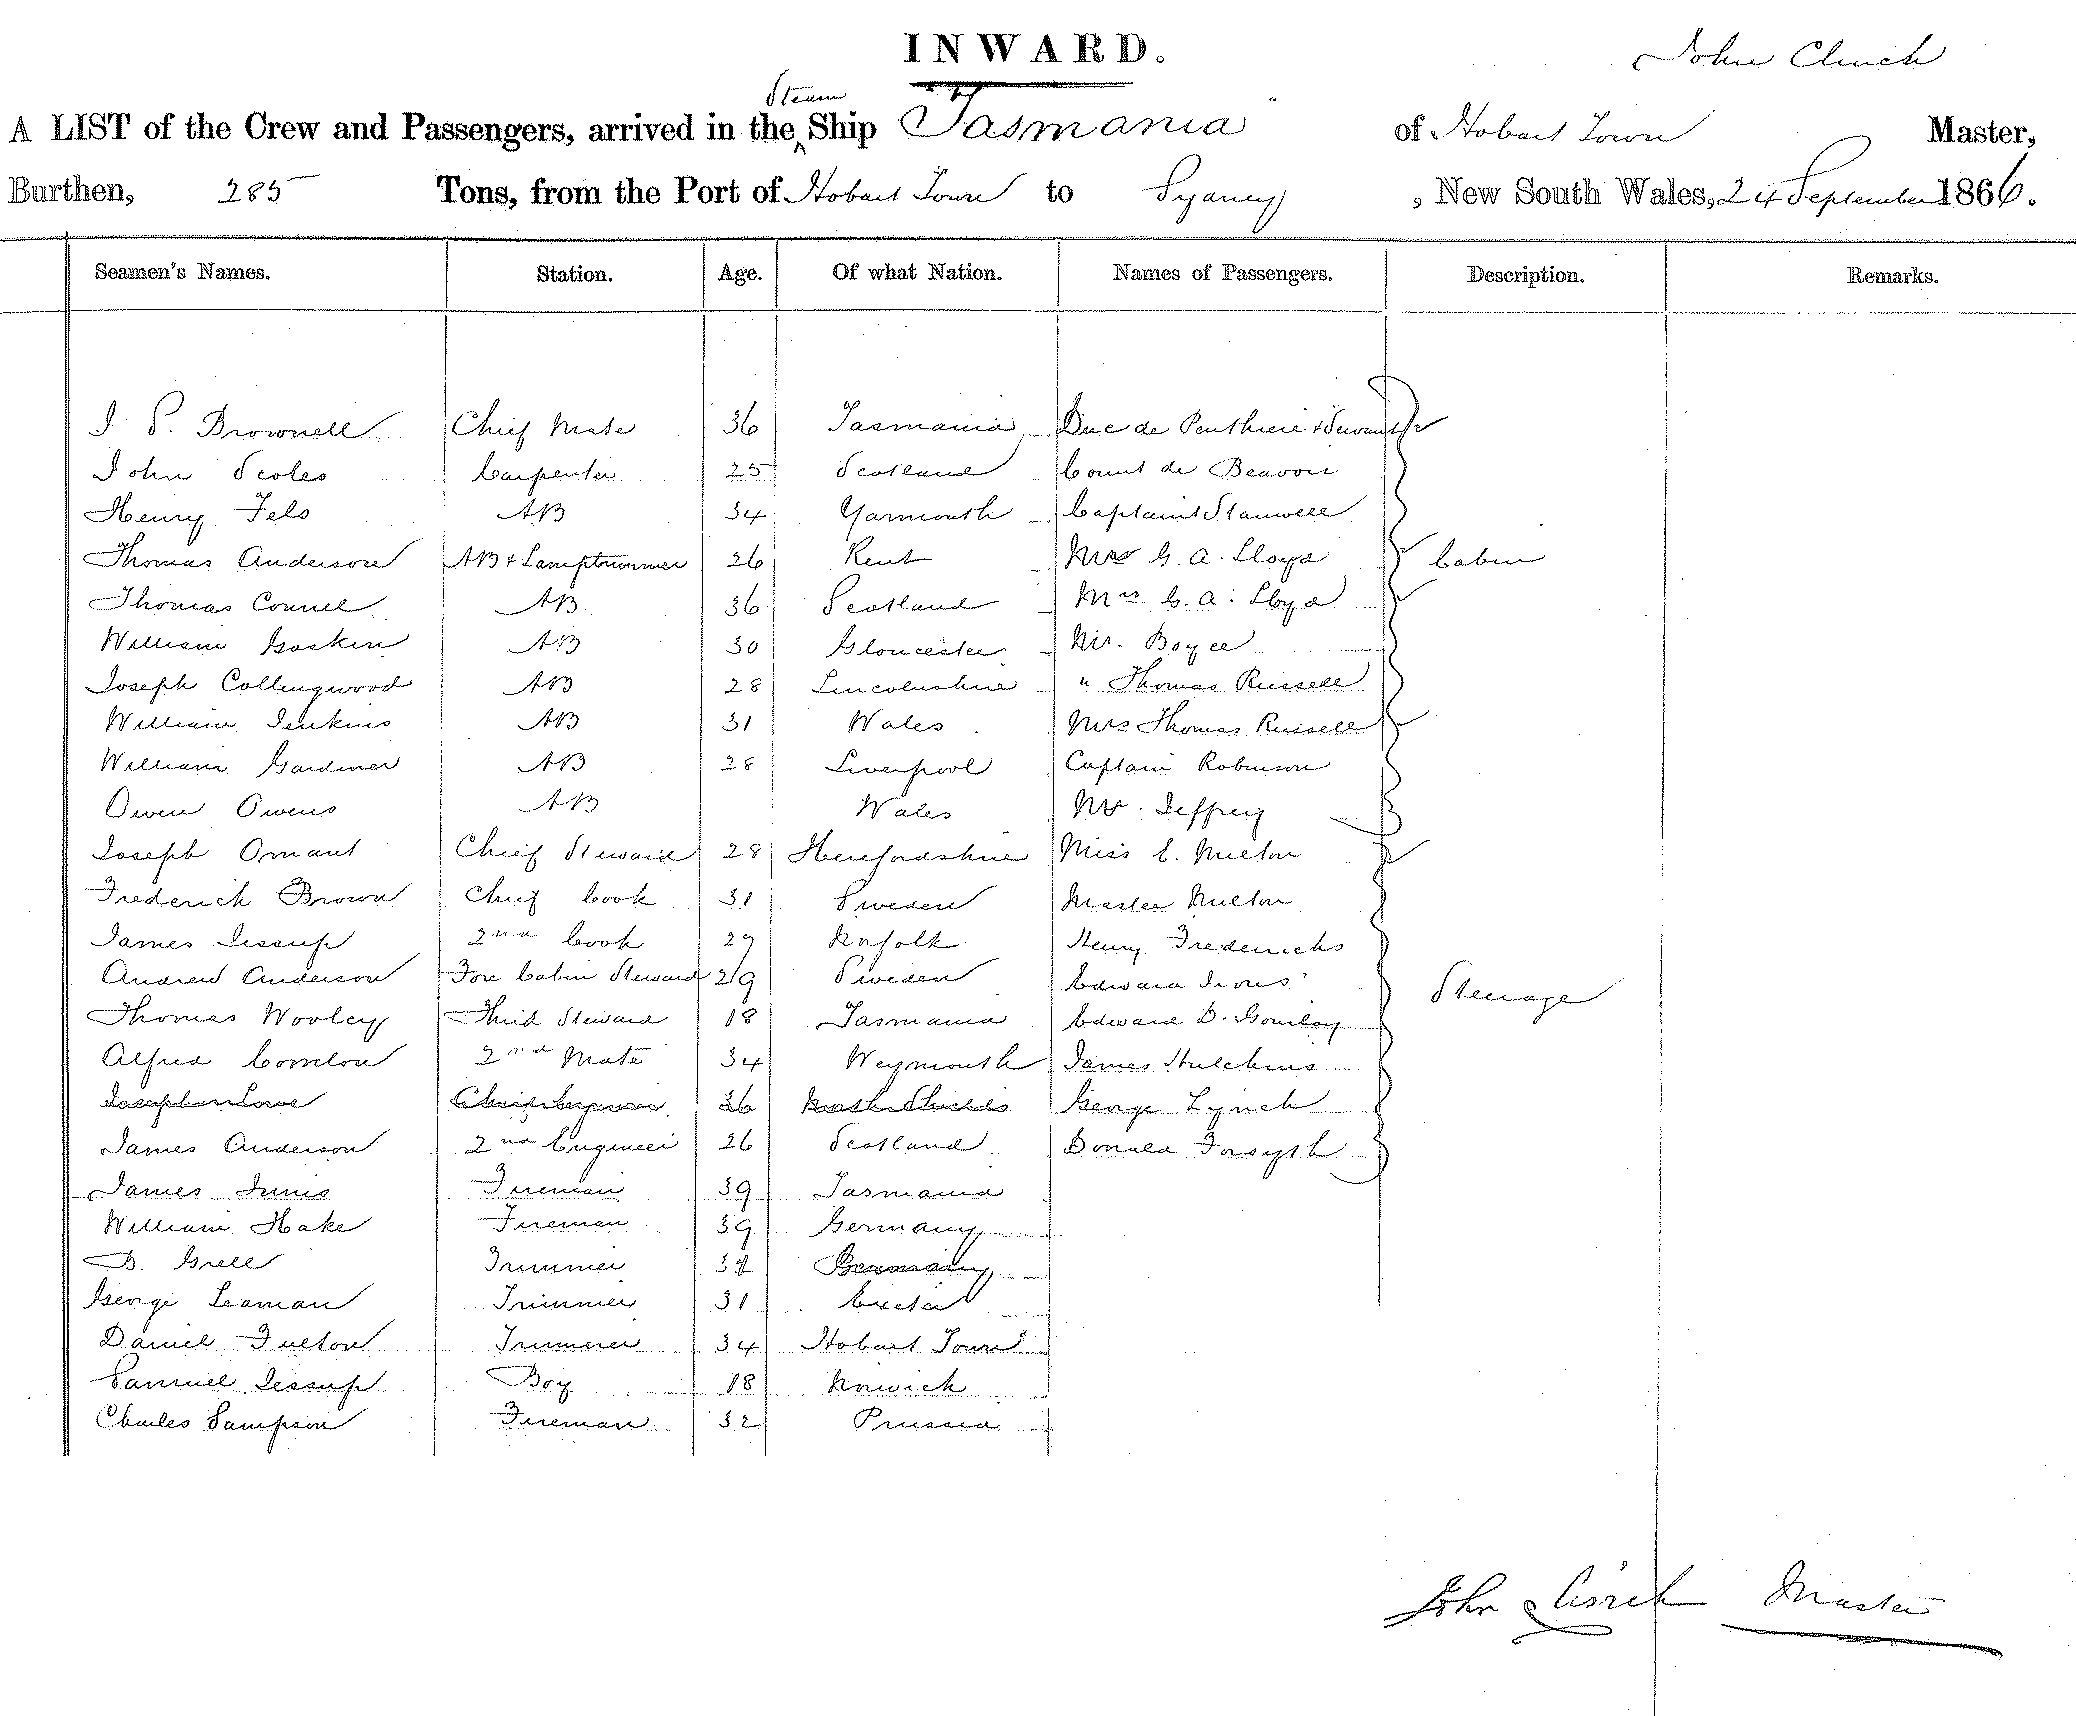 INWARD.
John Clinch
Steam
A LIST of the Crew and Passengers, arrived in the Ship Tasmania of Hobart Town Master,
Burthen, 285 Tons, from the Port of Hobart Town to Sydney, New South Wales, 24 September 1866.
Seamen's Names. Station. Age. Of what Nation. Names of Passengers. Description. Remarks.
J P. Brownell Chief Mate 36 Tasmania Duc de Penthievre & Servant
John Scoles Carpenter 25 Scotland Count de Beavoir
Henry Fels AB 34 Yarmouth Captain Stanwell
Thomas Anderson AB & Lamptrimmer 26 Kent Mrs G. A. Lloyd Cabin
Thomas Connel AB 36 Scotland Mrs C. A. Lloyd
William Gaskin AB 30 Gloucester Mr. Boyce
Joseph Collingwood AB 28 Lincolnshire " Thomas Russell
William Jenkins AB 31 Wales Mrs Thomas Russell
William Gardiner AB 28 Liverpool Captain Robinson
Owen Owens AB Wales Mr. Jeffrey
Joseph Omant Chief Steward 28 Herefordshire Miss C. Milton
Frederich Brown Chief Cook 31 Sweden Master Milton
James Jessup 2nd Cook 29 Norfolk Henry Fredericks
Andrew Anderson Fore Cabin Steward 29 Sweden Edward Irons Steerage
Thomas Wooley Third Steward 18 Tasmania Edward D.
Alfred Comelon 2nd Mate 34 Weymouth James Hutchins
Joseph Lowe 36 North Shields George Lynch
James Anderson 2nd Engineer 26 Scotland Donald Forsyth
James Innis Fireman 39 Tasmania
William Hake Fireman 39 Germany
B. Grell Trimmer 34 Germany
George Leaman Trimmer 31 Exeter
Daniel Fulton Trimmer 34 Hobart Town
Samuel Jessup Boy 18 Norwich
Charles Sampson Fireman 32 Prussia
John Clinch Master